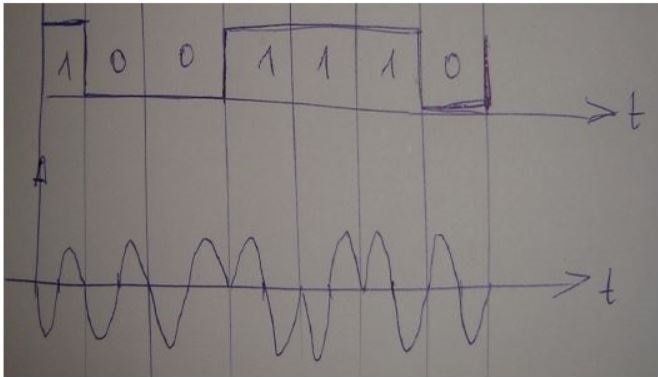 1 0 0 1 1 1 0
t
t